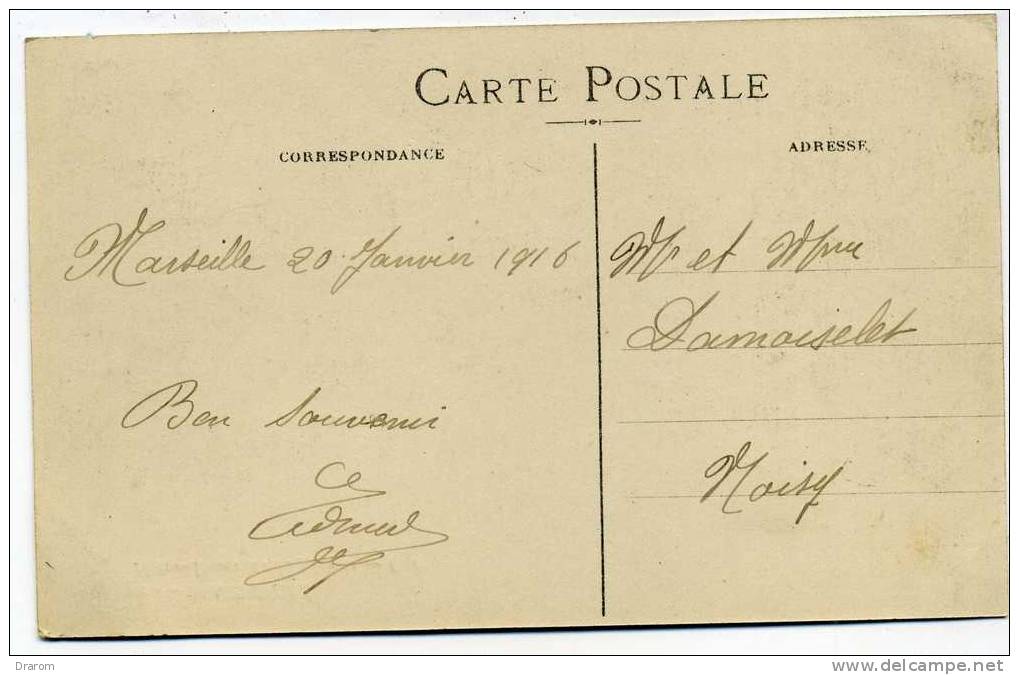 CARTE POSTALE
CORRESPONDANCE
ADRESSE
Marseille 20 Janvier 1916
Bon Souvenir
Mr et Mme
Damoiselet
Noisy
Drarom
www.delcampe.net